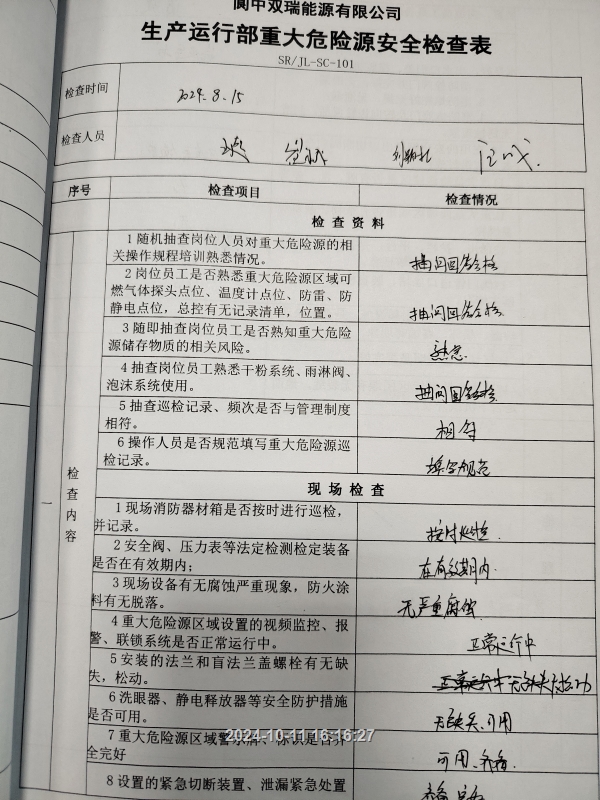 阆中双瑞能源有限公司
生产运行部重大危险源安全检查表
SR/JL-SC-101
检查时间 2024.8.15
检查人员
序号 检查项目 检查情况
检查资料
1 随机抽查岗位人员对重大危险源的相
关操作规程培训熟悉情况。 抽问回答合格
2 岗位员工是否熟悉重大危险源区域可
燃气体探头点位、温度计点位、防雷、防
静电点位，总控有无记录清单，位置。 抽问回答合格
3 随即抽查岗位员工是否熟知重大危险
源储存物质的相关风险。 熟悉
4 抽查岗位员工熟悉干粉系统、雨淋阀、
泡沫系统使用。 抽问回答合格
5 抽查巡检记录、频次是否与管理制度
相符。 相符
6 操作人员是否规范填写重大危险源巡
检记录。 填写规范
一 检查内容
现场检查
1 现场消防器材箱是否按时进行巡检，
并记录。 按时巡检
2 安全阀、压力表等法定检测检定装备
是否在有效期内； 在有效期内
3 现场设备有无腐蚀严重现象，防火涂
料有无脱落。 无严重腐蚀
4 重大危险源区域设置的视频监控、报
警、联锁系统是否正常运行中。 正常运行中
5 安装的法兰和盲法兰盖螺栓有无缺
失，松动。 正常运行中 无缺失
6 洗眼器、静电释放器等安全防护措施
是否可用。 无缺失、可用
2024-10-11 16:16:27
7 重大危险源区域警示牌、标识是否齐
全完好 可用、
8 设置的紧急切断装置、泄漏紧急处置